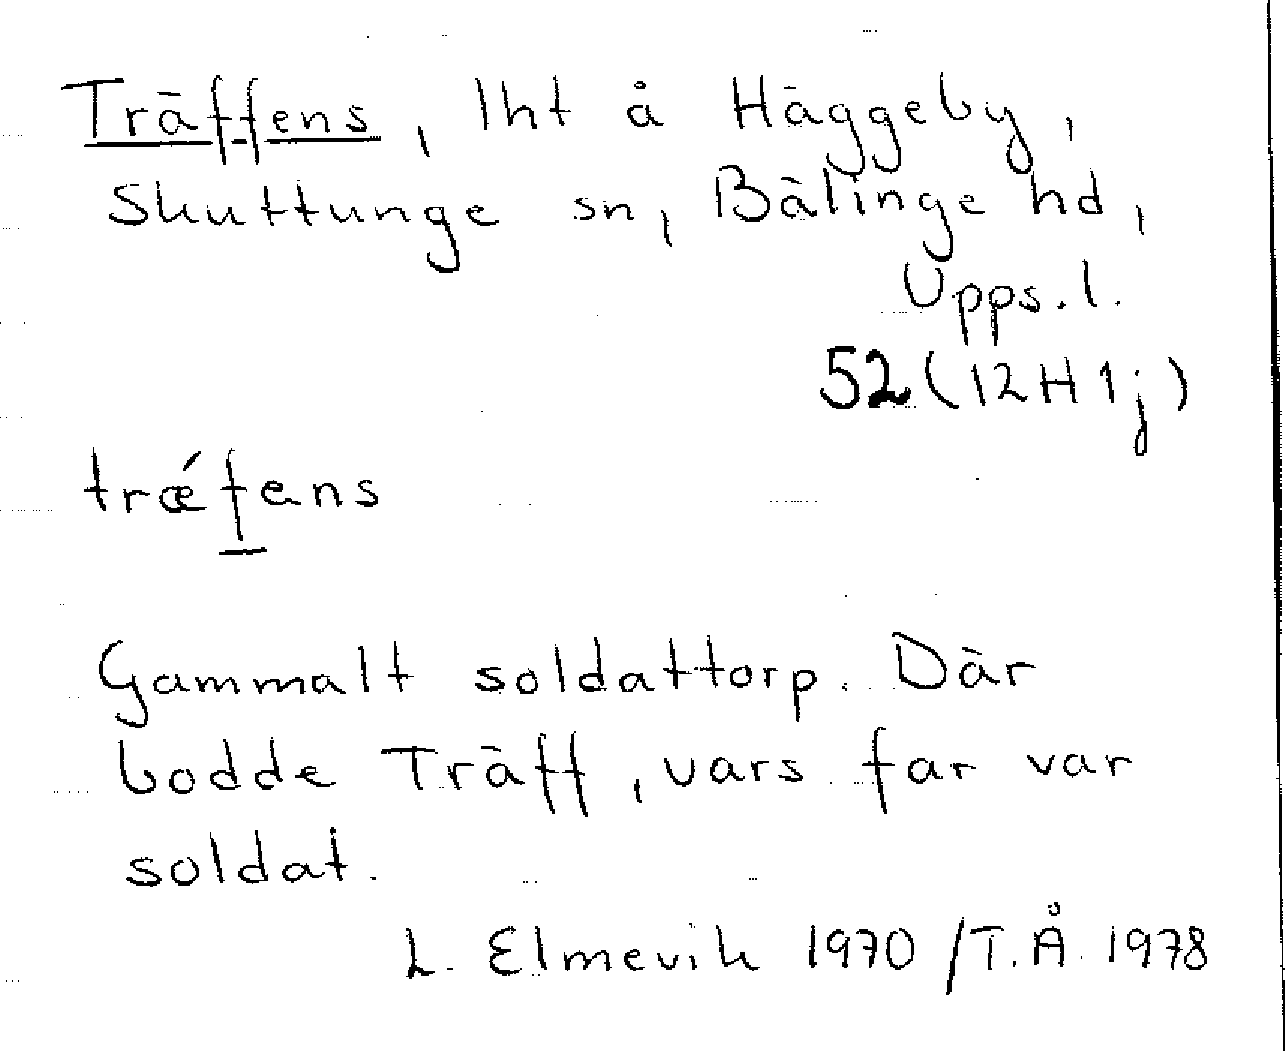 Träffens, lht å Häggeby,
Skuttunge sn, Bälinge hd,
Upps. l.
52 (12H1j)
træ´fens
Gammalt soldattorp. Där
bodde Träff, vars far var
soldat.
L. Elmevik 1970 /T.Å. 1978